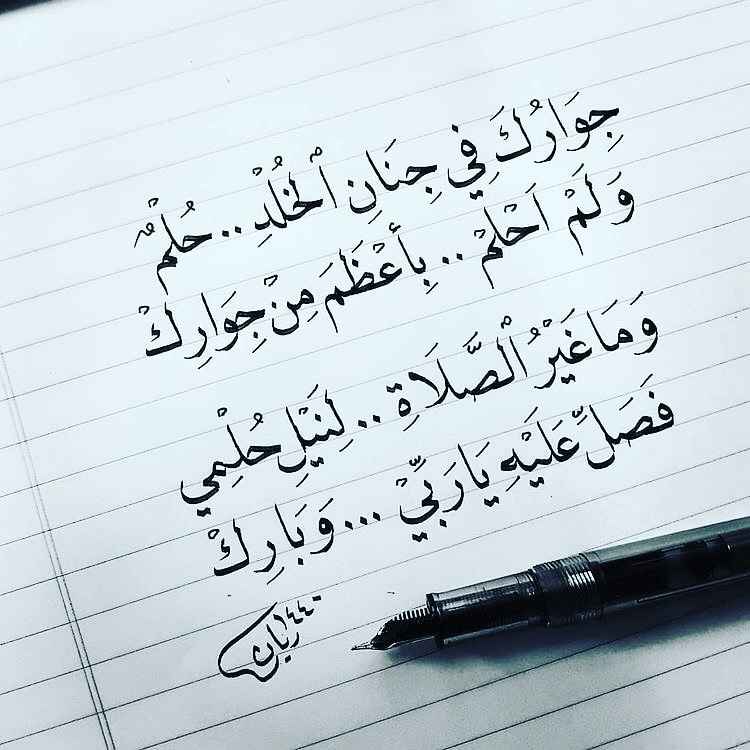 جِوَارُكَ فِي جِنَانِ الْخُلْدِ .. حُلْمٌ
وَلَمْ اَحْلَمْ .. بِأَعْظَمَ مِنْ جِوَارِكْ
وَمَا غَيْرُ الْصَّلَاةِ .. لِنَيْلِ حُلْمِي
فَصَلِّ عَلَيْهِ يَا رَبِّيْ ... وَبَارِكْ
ريان ١٤٤٠